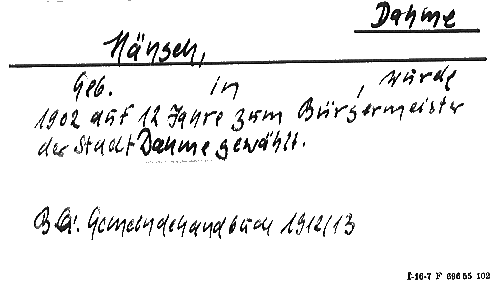 Dahme
Hänsch,
Geb. in , wurde
1902 auf 12 Jahre zum Bürgermeister
der Stadt Dahme gewählt.
Gemeindehandbuch 1912/13
I-16-7 F 696 55 102